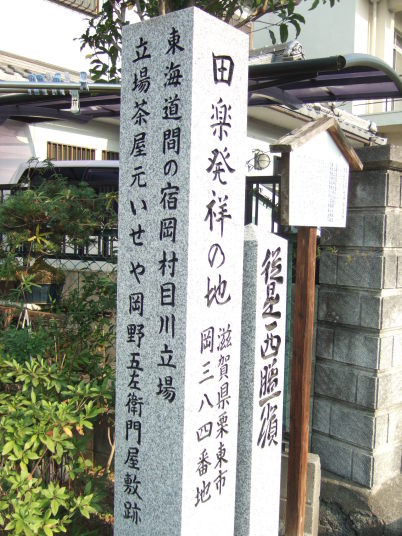 田楽発祥の地
滋賀県栗東市
岡三八四番地
東海道間の宿岡村目川立場
立場茶屋元いせや岡野五左衛門屋敷跡
従是西膳所領